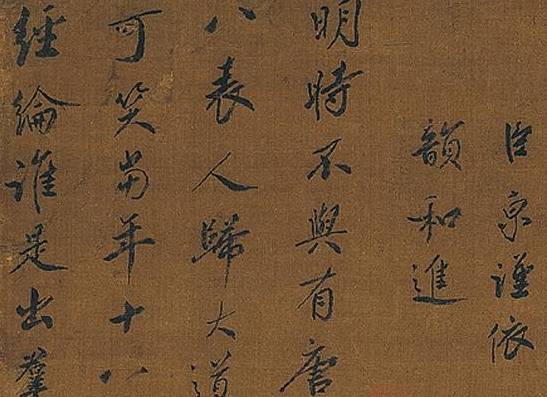 臣京謹依
韻和進
明時不與有唐
八表人歸大道
可笑當年十八
經綸誰是出羣